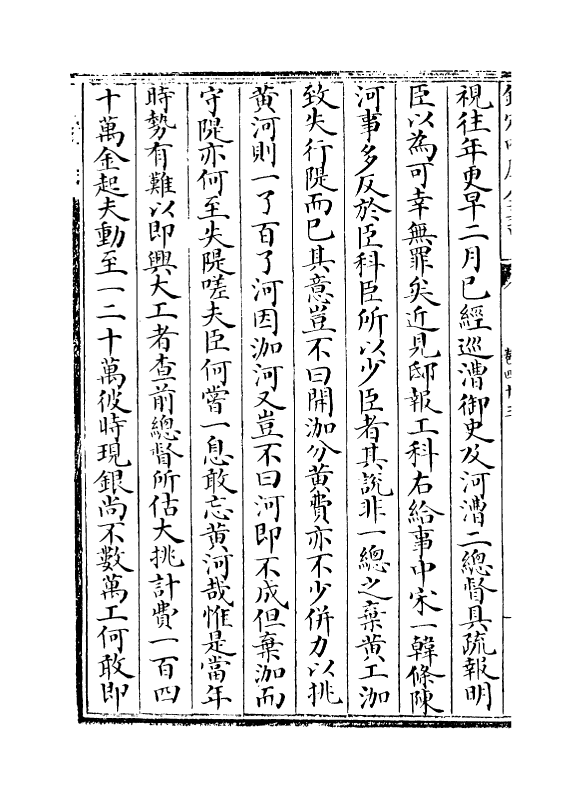 視往年更早二月已經巡漕御史及河漕二總督具疏報明
臣以為可幸無罪矣近見邸報工科右給事中宋一韓條陳
河事多反於臣科臣所以少臣者其說非一總之棄黃工泇
致失行隄而已其意豈不曰開泇分黃費亦不少併力以挑
黃河則一了百了河因泇河又豈不曰河即不成但棄泇而
守隄亦何至失隄嗟夫臣何嘗一息敢忘黃河哉惟是當年
時勢有難以即興大工者查前總督所估大挑計費一百四
十萬金起夫動至一二十萬彼時現銀尚不數萬工何敢即